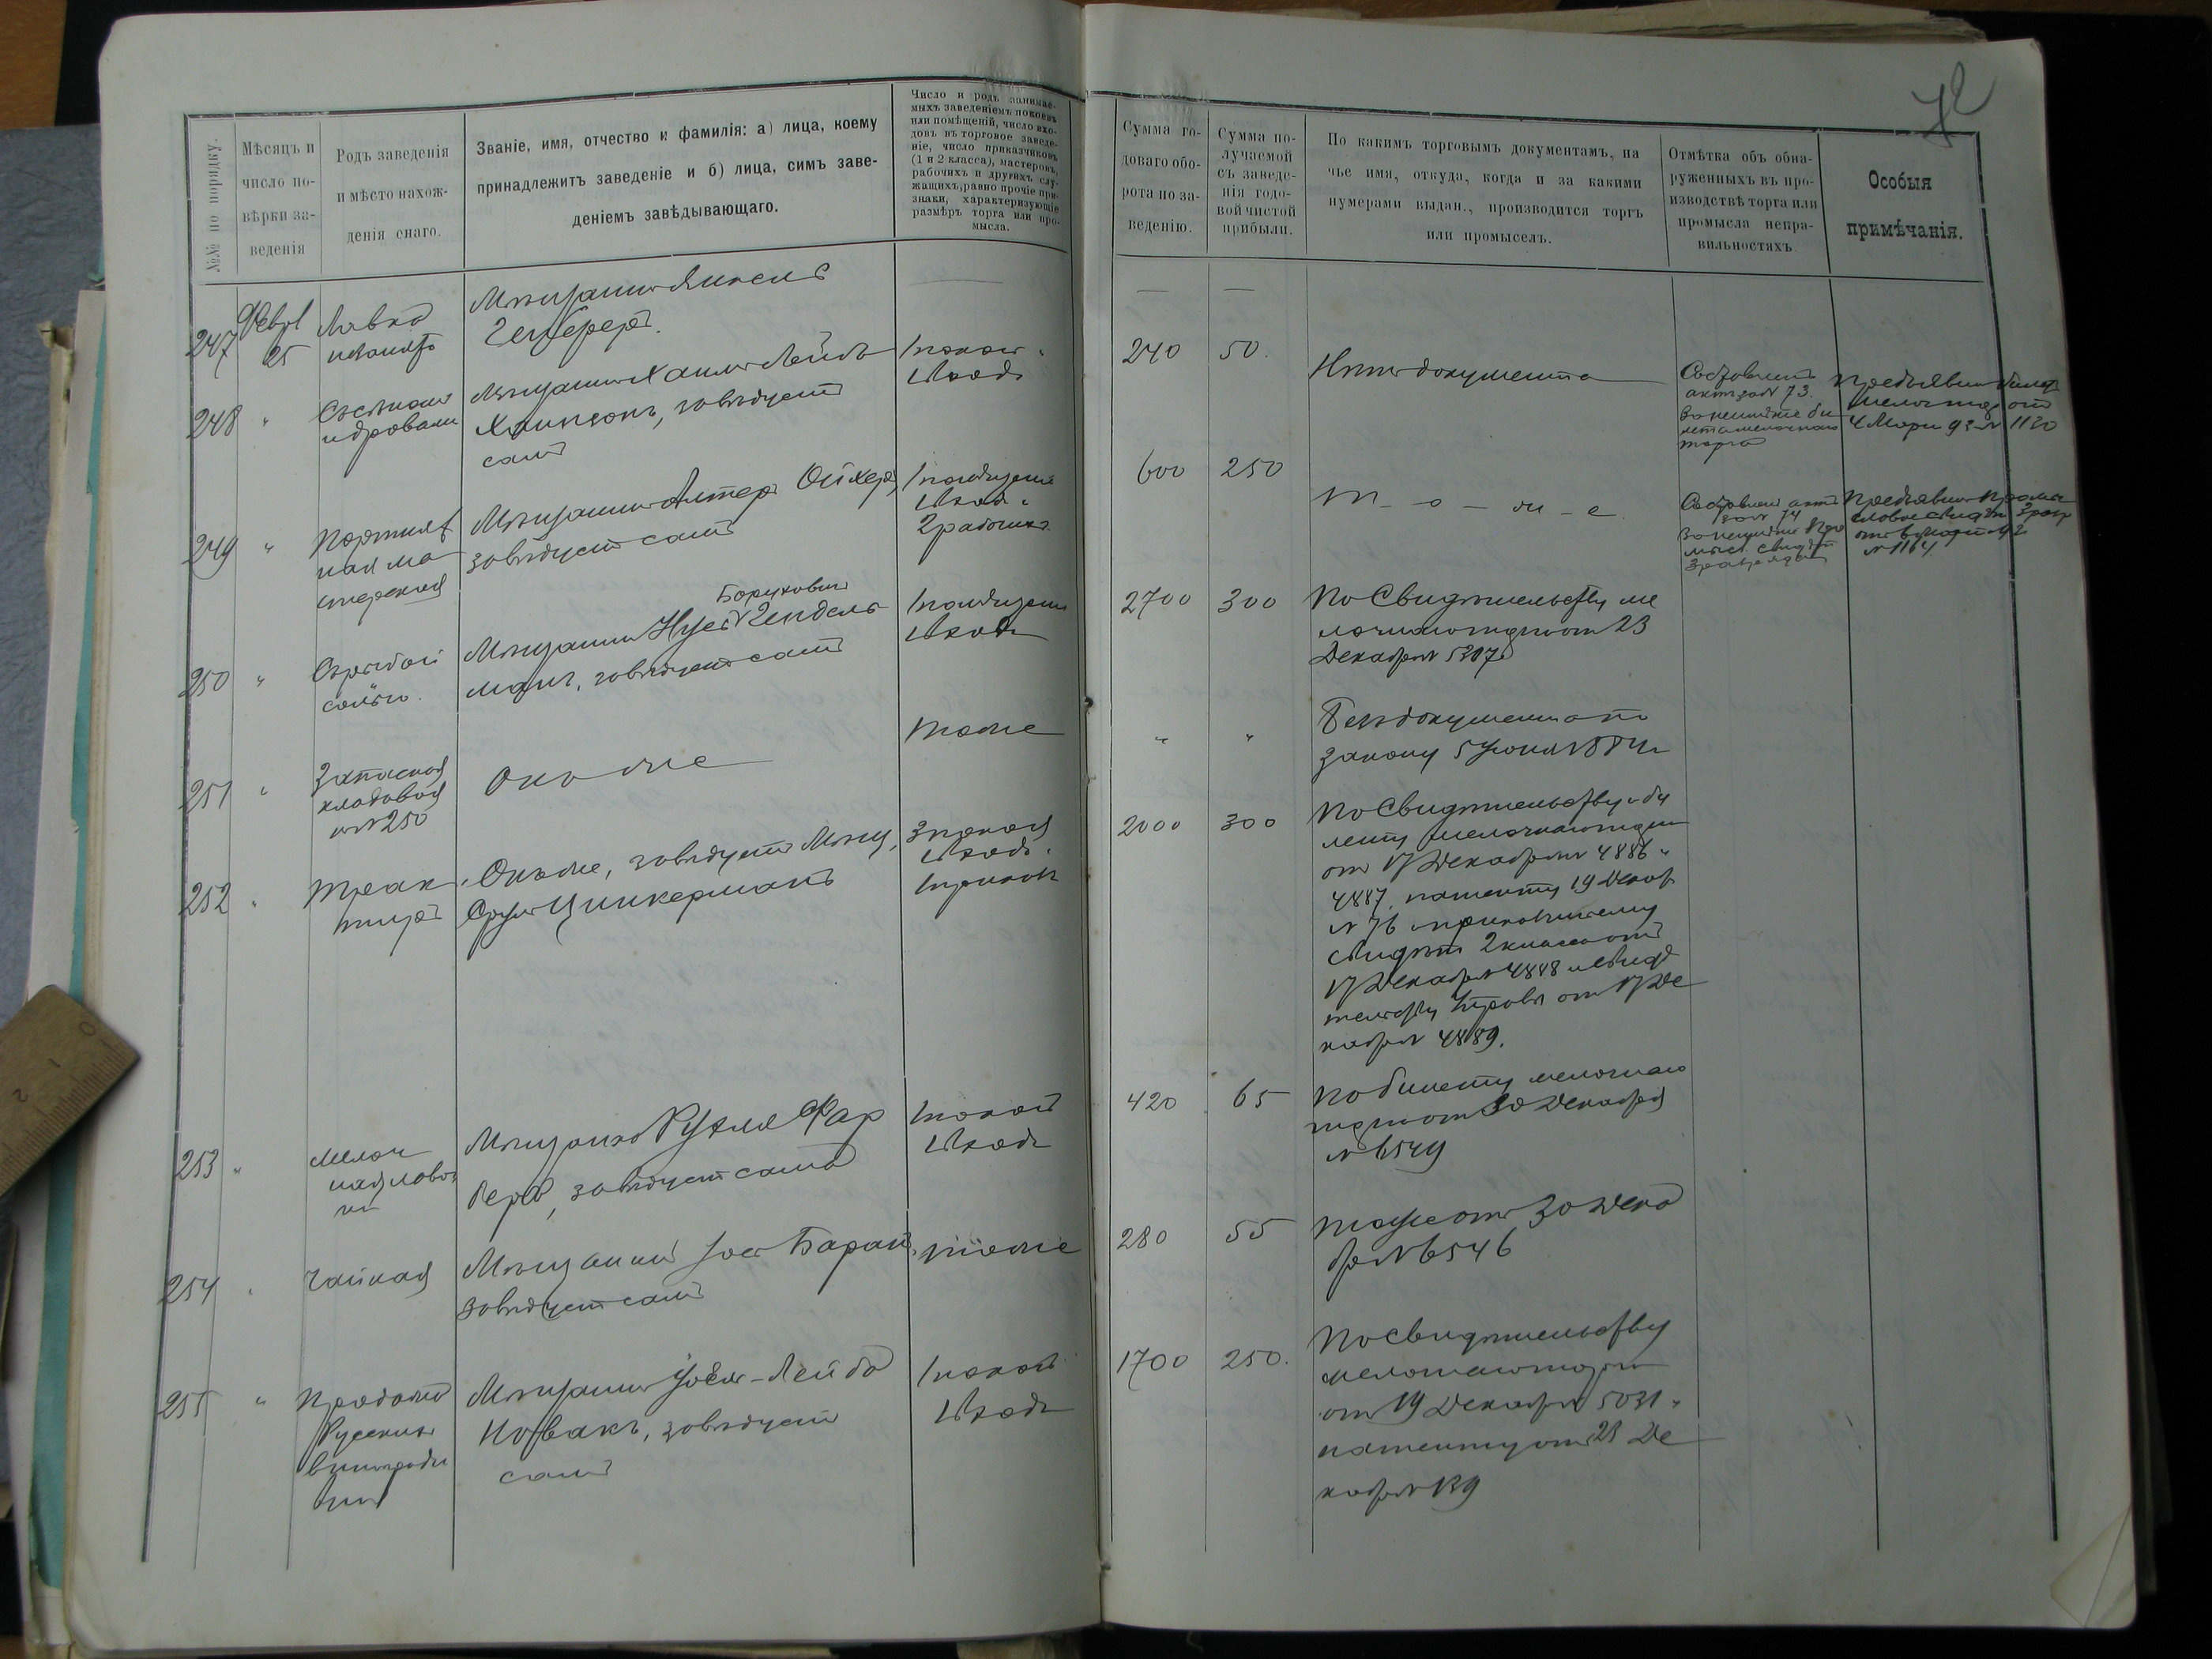 72
№№ по порядку.
Мѣсяцъ и
число по-
вѣрки за-
веденія
Родъ заведенія
и мѣсто нахож-
денія онаго.
Званіе, имя, отчество и фамилія: а) лица, коему
принадлежитъ заведеніе и б) лица, симъ заве-
деніемъ завѣдывающаго.
Число и родъ занимае-
мыхъ заведеніемъ покоевъ
или помѣщеній, число вхо-
довъ въ торговое заведе-
ніе, число приказчиковъ
(1 и 2 класса), мастеровъ,
рабочихъ и другихъ слу-
жащихъ, равно прочіе при-
знаки, характеризующіе
размѣръ торга или про-
мысла.
Сумма го-
доваго обо-
рота по за-
веденію.
Сумма по-
лучаемой
съ заведе-
нія годо-
вой чистой
прибыли.
По какимъ торговымъ документамъ, на
чье имя, откуда, когда и за какими
нумерами выдан., производится торгъ
или промыселъ.
Отмѣтка объ обна-
руженныхъ въ про-
изводствѣ торга или
промысла непра-
вильностяхъ
Особыя
примѣчанія.
247
Февр
25
Лавка
незанята
Мѣщанинъ Янкель
— — —
248
"
Съѣстная
и дровами
Мѣщанинъ Хаимъ Лейбъ
Хаимзонъ, завѣдуетъ
самъ
1 покой и
1 входъ
240
50.
Нѣтъ документа
Составленъ
актъ за № 73.
за неимѣніе би
лета мелочнаго
торга
Предъявилъ билетъ
мелоч. тор. отъ
4 Марта 93 № 1130
249
"
Портняж
ная ма
стерская
Мѣщанинъ Алтеръ Ойхеръ,
завѣдуетъ самъ
1 помѣщеніе
1 входъ и
2 работника
600
250
т - о - ж - е
Составленъ актъ
за № 74
за неимѣніе про
мысл. свидѣт
3 разряда
Предъявилъ промы
словое свидѣт 3 разр
№ 1164
250
"
солью.
Боруховичъ
Мѣщанинъ Нусъ Гендель
манъ, завѣдуетъ самъ
1 помѣщеніе
1 входъ
2700
300
По Свидѣтельству ме
лочнаго торга отъ 23
Декабря № 5307
251
"
Запасная
кладовая
къ № 250
Онъ же
тоже
"
"
Безъ документа по
закону 5 Іюня 1884 г
252
"
Трак
тиръ
Онъ же, завѣдуетъ Мѣщ.
Сруль Цинкерманъ
3 покоя
1 входъ.
1 приказч
2000
300
По Свидѣтельству и би
лету мелочнаго торга
отъ 17 Декабря № 4886 и
4887, патенту 19 Декаб
№ 76 и приказчичьему
свидѣт 2 класса отъ
17 Декабря № 4888 и свидѣ
тельству Упровы отъ 17 Де
кабря № 4889.
253
"
Мелоч
ная лавоч
ка
Мѣщанка Рухля Фар
беръ, завѣдуетъ сама
1 покой
1 входъ
420
65
По билету мелочнаго
торга отъ 30 Декабря
№ 6549
254
"
Чайная
Мѣщанинъ Іосъ Баранъ,
завѣдуетъ самъ
тоже
280
55
Тоже отъ 30 Дека
бря № 6546
255
"
Продажа
Русскихъ
виноградн
винъ
Мѣщанинъ Іоель-Лейба
Новакъ, завѣдуетъ
самъ
1 покой
1 входъ
1700
250.
По Свидѣтельству
мелочнаго торга
отъ 19 Декабря № 5031 и
патенту отъ 23 Де
кабря № 139
0
1
2